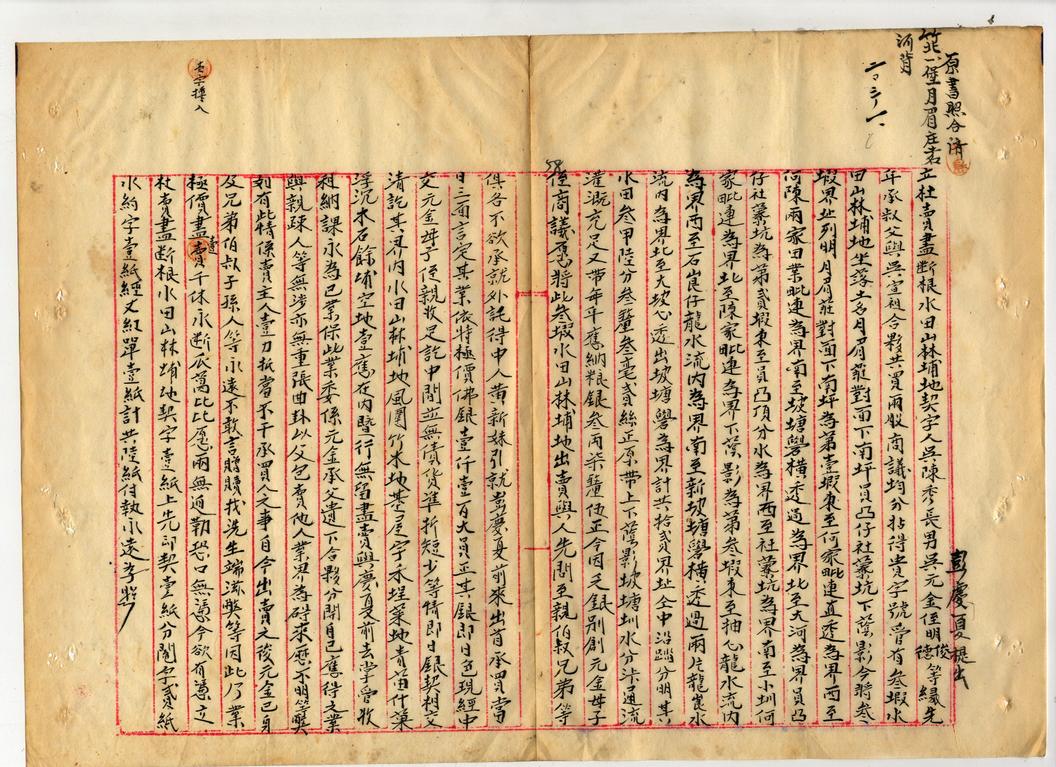 原書照合濟
竹北一堡月眉庄土名
河背
二、三、一
彭慶夏提出
壹字攙入
立杜賣盡斷根水田山林埔地契字人吳陳秀長男吳元金侄明俊德等緣先
年承叔父與吳宣祖合夥共買兩股商議均分拈得貴字號管有叁嘏水
田山林埔地坐落土名月眉庄對面下南坪員凸仔社藔坑下蔭影今將叁
嘏界址列明月眉庄對面下南坪為第壹嘏東至何家毗連直透為界西至
何陳兩家田業毗連為界南至坡塘礐橫透過為界北至大河為界員凸
仔社藔坑為第貳嘏東至員凸頂分水為界西至社藔坑為界南至小圳何
家毗連為界北至陳家毗連為界下蔭影為第叁嘏東至抽心龍水流內
為界西至石崀仔龍水流內為界南至新坡塘礐橫透過兩片龍崀水
流內為界北至大坡心透出坡塘礐為界計共拾貳界址仝中沿踏分明其
水田叁甲陸分叁釐叁毫貳絲正原帶上下蔭影坡塘圳水分柒通流
灌溉充足又帶年年應納粮銀叁両柒錢伍正今因乏銀別創元金母子
侄商議愿將此叁嘏水田山林埔地出賣與人先問至親伯叔兄弟等
俱各不欲承就外託得中人黃新妹引就彭慶夏前來出首承買當
日三面言定其業依時極價佛銀壹仟壹百大員正其銀即日色現經中
交元金母子侄親收足訖中間並無債貨準折短少等情即日銀契相交
清訖其界內水田山林埔地風圍竹木地基屋宇禾埕菜地青苗什藥
浮沉木石餘埔空地壹應在內暨行無留盡賣與慶夏前去掌管收
租納課永為己業保此業委係元金承父遺下合夥分開自己應得之業
與親疎人等無涉亦無重張典掛以父包賣他人業界為碍來歷不明等弊
如有此情係賣主人壹力抵當不干承買人之事自今出賣之後元金己身
及兄弟伯叔子孫人等永遠不敢言贈贖找洗生端滋弊等因此乃業
極價盡壹賣千休永斷瓜葛比比愿兩無迫勒恐口無憑今欲有憑立
杜賣盡斷根水田山林埔地契字壹紙上先印契壹紙分鬮字貳紙
水約字壹紙經丈紅單壹紙計共陸紙付執永遠為炤